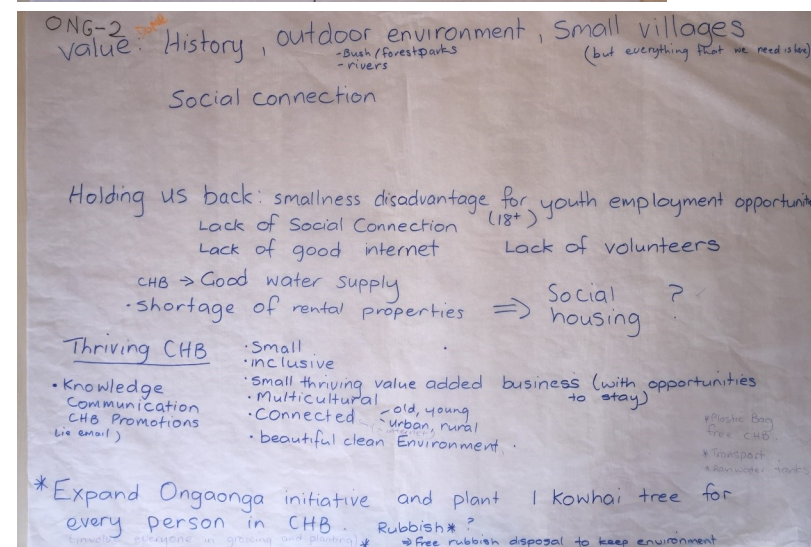 ONG-2 DONE
Value: History, outdoor environment, Small villages
-Bush/forestparks (but everything that we need is here)
-rivers
Social connection
Holding us back: smallness disadvantage for youth employment opportunit
(18+)
Lack of Social Connection
Lack of good internet Lack of volunteers
CHB → Good water supply
• shortage of rental properties ⇒ Social housing ?
Thriving CHB
• Small
• inclusive
• Small thriving value added business (with opportunities to stay)
• Multicultural
• Connected - old, young
- urban, rural
• beautiful clean Environment.
• Knowledge
Communication
CHB Promotions
(ie email)
*Plastic Bag
free CHB
*Transport
* Expand Ongaonga initiative and plant 1 kowhai tree for
every person in CHB. Rubbish* ?
(involve everyone in growing and planting) * ⇒ free rubbish disposal to keep environment